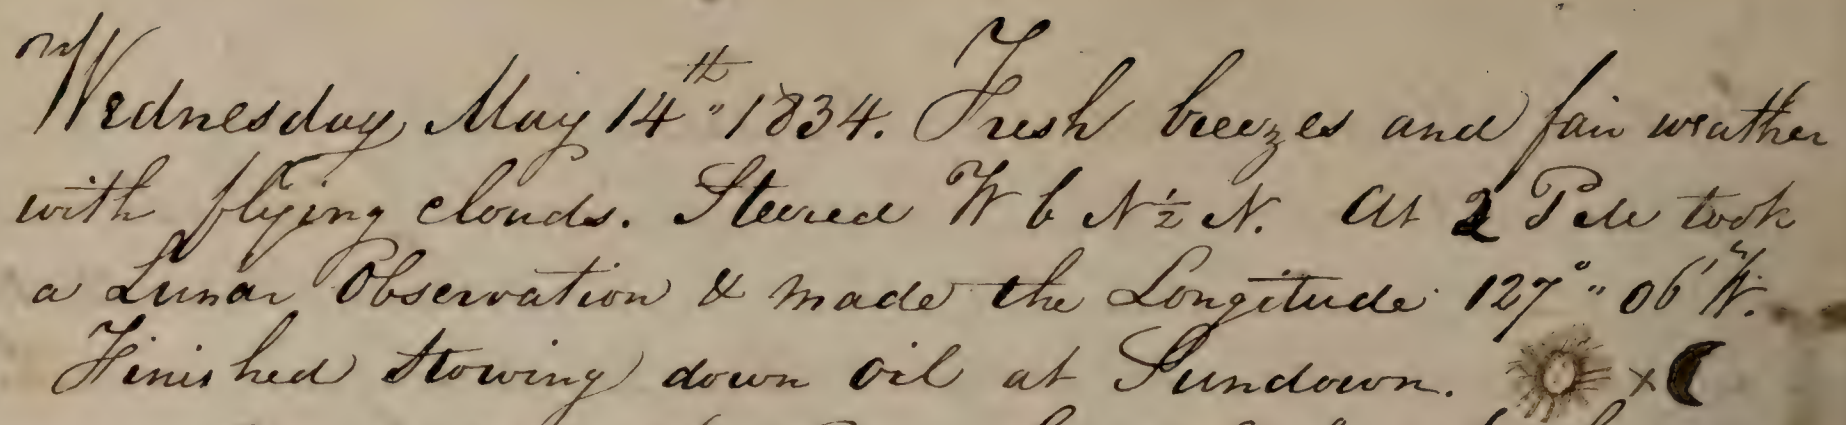 Wednesday May 14th " 1834. Fresh breezes and fair weather
with flying clouds. Steered W b N ½ N. At 2 PM took
a Lunar Observation & made the Longitude 127° " 06' W.
Finished Stowing down oil at Sundown.